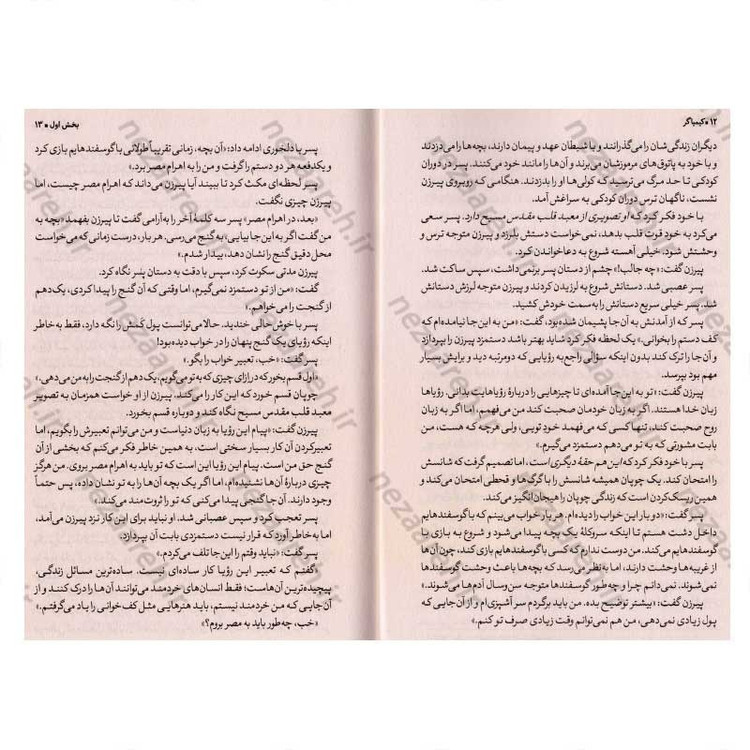 ۱۲ • کیمیاگر
دیگران زندگی‌شان را می‌گذرانند و با شیطان عهد و پیمان دارند، بچه‌ها را می‌دزدند
و با خود به پاتوق‌های مرموزشان می‌برند و آن‌ها را مانند خود می‌کنند. پسر در دوران
کودکی تا حد مرگ می‌ترسید که کولی‌ها او را بدزدند. هنگامی که روبروی پیرزن
نشست، ناگهان ترس دوران کودکی به سراغش آمد.
با خود فکر کرد که او تصویری از معبد قلب مقدس مسیح دارد. پسر سعی
می‌کرد به خود قوت قلب بدهد، نمی‌خواست دستش بلرزد و پیرزن متوجه ترس و
وحشتش شود. خیلی آهسته شروع به دعا خواندن کرد.
پیرزن گفت: «چه جالب!» چشم از دستان پسر برنمی‌داشت، سپس ساکت شد.
پسر عصبی شد. دستانش شروع به لرزیدن کردند و پیرزن متوجه لرزش دستانش
شد. پسر خیلی سریع دستانش را به سمت خودش کشید.
پسر که از آمدنش به آن‌جا پشیمان شده بود، گفت: «من به این‌جا نیامده‌ام که
کف دستم را بخوانی.» یک لحظه فکر کرد شاید بهتر باشد دستمزد پیرزن را بپردازد
و آن‌جا را ترک کند بدون اینکه سؤالی راجع به رؤیایی که دو مرتبه دید و برایش بسیار
مهم بود بپرسد.
پیرزن گفت: «تو به این‌جا آمده‌ای تا چیزهایی را دربارهٔ رؤیاهایت بدانی. رؤیاها
زبان خدا هستند. اگر به زبان خودمان صحبت کند من می‌فهمم، اما اگر به زبان
روح صحبت کند، تنها کسی که می‌فهمد خود تویی. ولی هرچه که هست، من
بابت مشورتی که به تو می‌دهم دستمزد می‌گیرم.»
پسر با خود فکر کرد که این هم حقهٔ دیگری است، اما تصمیم گرفت که شانسش
را امتحان کند. یک چوپان همیشه شانسش را با گرگ‌ها و قحطی امتحان می‌کند و
همین ریسک کردن است که زندگی چوپان را هیجان‌انگیز می‌کند.
پسر گفت: «دو بار این خواب را دیده‌ام. هر بار خواب می‌بینم که با گوسفندهایم
داخل دشت هستم تا اینکه سروکلهٔ یک بچه پیدا می‌شود و شروع به بازی با
گوسفندهایم می‌کند. من دوست ندارم که کسی با گوسفندهایم بازی کند، چون آن‌ها
از غریبه‌ها وحشت دارند. اما به نظر می‌رسد که بچه‌ها باعث وحشت گوسفندها
نمی‌شوند. نمی‌دانم چرا و چه‌طور گوسفندها متوجه سن‌وسال آدم‌ها می‌شوند.»
پیرزن گفت: «بیشتر توضیح بده. من باید برگردم سر آشپزی‌ام و از آن‌جایی که
پول زیادی نمی‌دهی، من هم نمی‌توانم وقت زیادی صرف تو کنم.»
بخش اول • ۱۳
پسر با دلخوری ادامه داد: «آن بچه، زمانی تقریباً طولانی با گوسفندهایم بازی کرد
و یکدفعه هر دو دستم را گرفت و من را به اهرام مصر برد.»
پسر لحظه‌ای مکث کرد تا ببیند آیا پیرزن می‌داند که اهرام مصر چیست، اما
پیرزن چیزی نگفت.
«بعد، در اهرام مصر» پسر سه کلمهٔ آخر را به آرامی گفت تا پیرزن بفهمد «بچه به
من گفت اگر به این‌جا بیایی، به گنج می‌رسی. هر بار، درست زمانی که می‌خواست
محل دقیق گنج را نشان دهد، بیدار شدم.»
پیرزن مدتی سکوت کرد، سپس با دقت به دستان پسر نگاه کرد.
گفت: «من از تو دستمزد نمی‌گیرم، اما وقتی که آن گنج را پیدا کردی، یک‌دهم
از گنجت را می‌خواهم.»
پسر با خوش‌حالی خندید. حالا می‌توانست پول کمش را نگه دارد، فقط به خاطر
اینکه رؤیای یک گنج پنهان را در خواب دیده بود!
پسر گفت: «خب، تعبیر خواب را بگو.»
«اول قسم بخور که در ازای چیزی که به تو می‌گویم، یک‌دهم از گنجت را به من می‌دهی.»
چوپان قسم خورد که این کار را می‌کند. پیرزن از او خواست همزمان به تصویر
معبد قلب مقدس مسیح نگاه کند و دوباره قسم بخورد.
پیرزن گفت: «پیام این رؤیا به زبان دنیاست و من می‌توانم تعبیرش را بگویم، اما
تعبیر کردن آن کار بسیار سختی است. به همین خاطر فکر می‌کنم که بخشی از آن
گنج حق من است. پیام این رؤیا این است که تو باید به اهرام مصر بروی. من هرگز
چیزی دربارهٔ آن‌ها نشنیده‌ام، اما اگر یک بچه آن‌ها را به تو نشان داده، پس حتماً
وجود دارند. آن‌جا گنجی پیدا می‌کنی که تو را ثروتمند می‌کند.»
پسر تعجب کرد و سپس عصبانی شد. او نباید برای این کار نزد پیرزن می‌آمد،
اما به خاطر آورد که قرار نیست دستمزدی بابت آن بپردازد.
پسر گفت: «نباید وقتم را این‌جا تلف می‌کردم.»
«گفتم که تعبیر این رؤیا کار ساده‌ای نیست. ساده‌ترین مسائل زندگی،
پیچیده‌ترین آن‌هاست؛ فقط انسان‌های خردمند می‌توانند آن‌ها را درک کنند و از
آن‌جایی که من خردمند نیستم، باید هنرهایی مثل کف‌خوانی را یاد می‌گرفتم.»
«خب، چه‌طور باید به مصر بروم؟»
nezaareh.ir